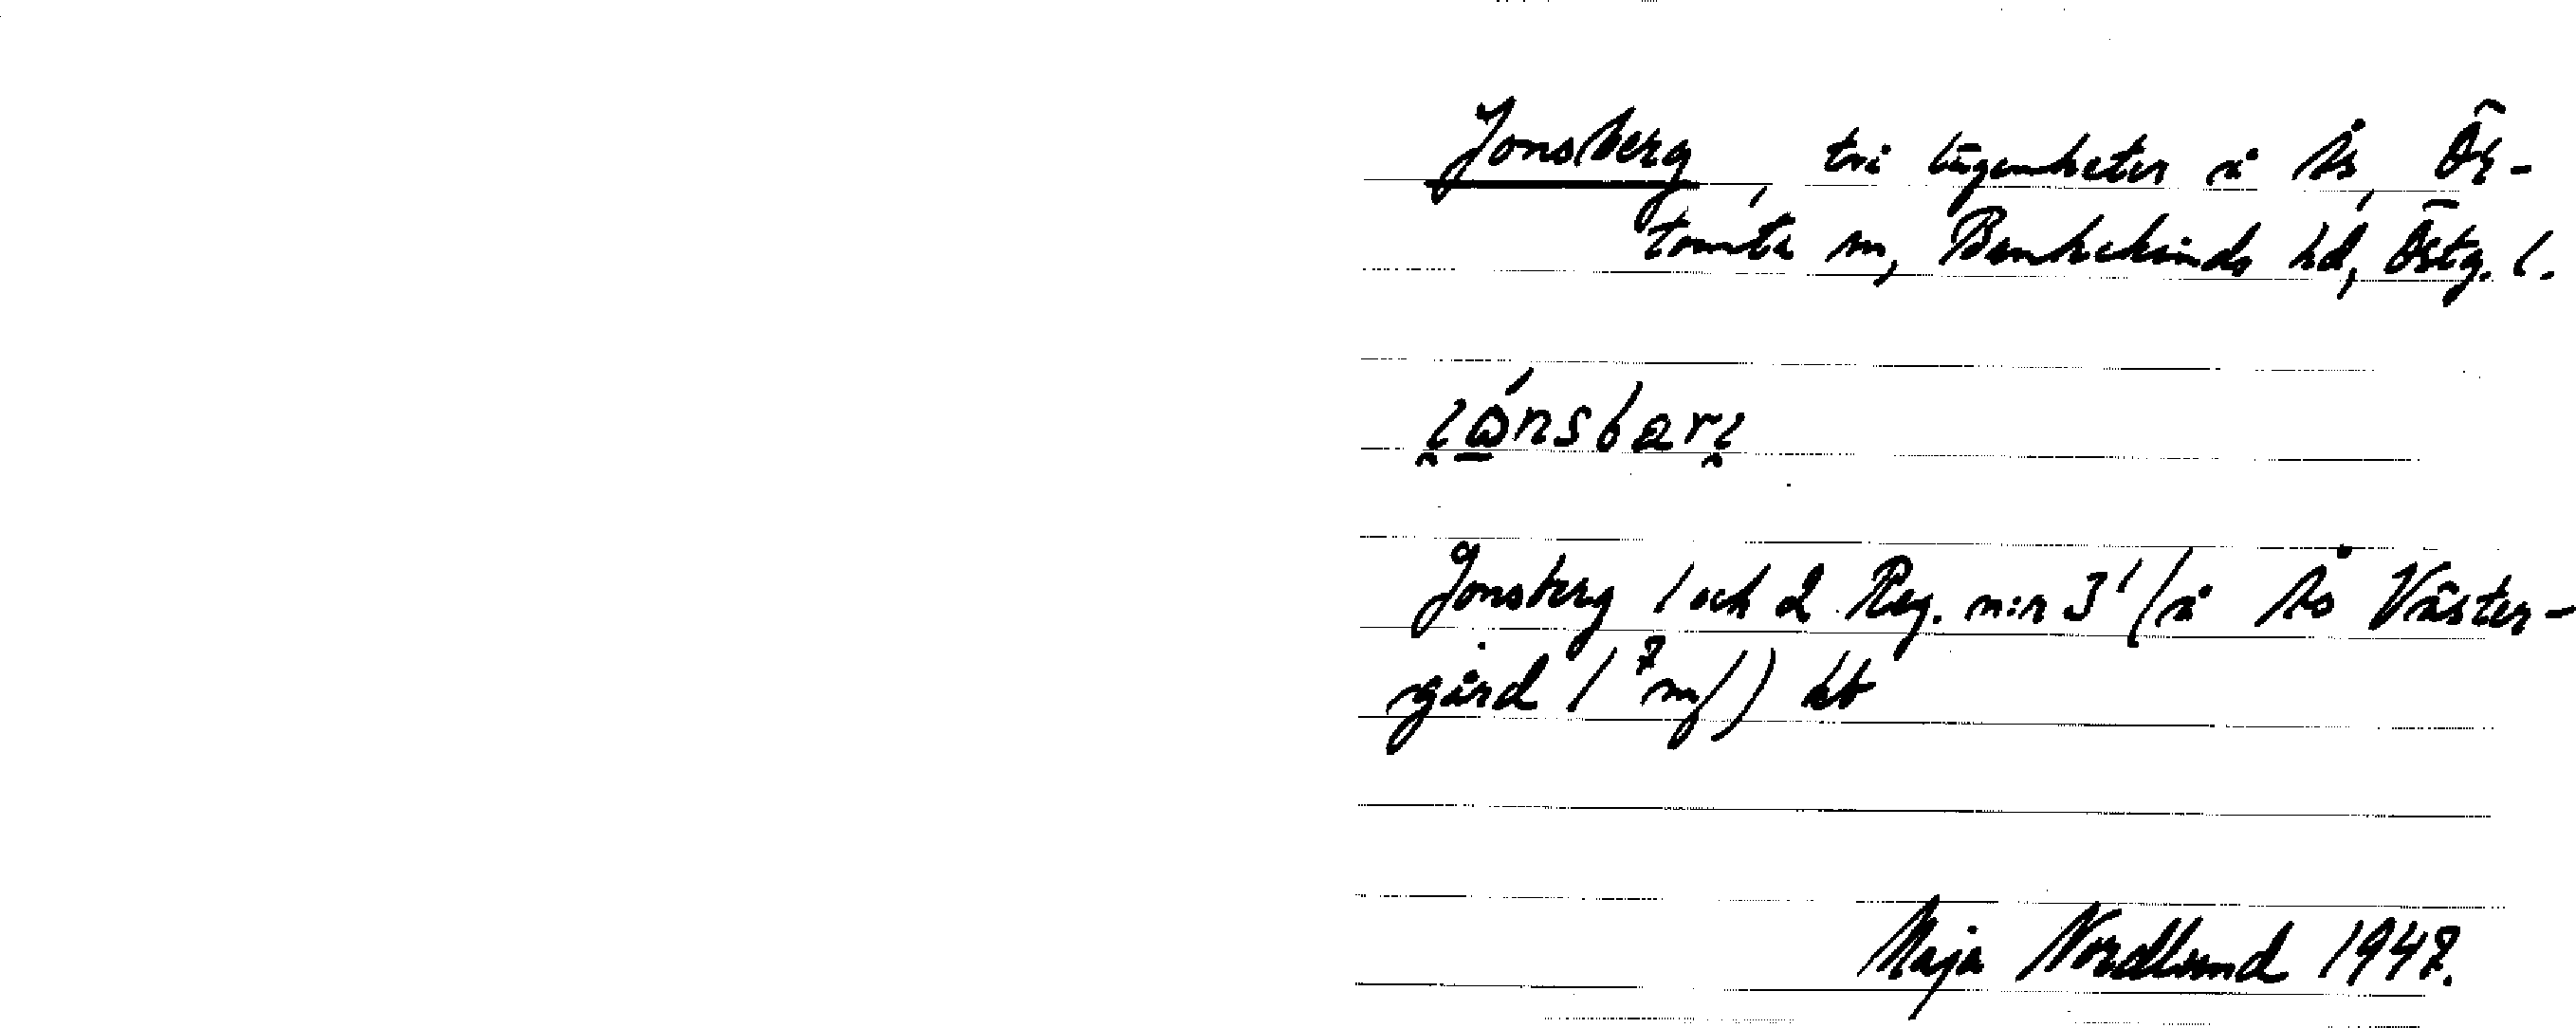 Jonsberg, två lägenheter å Ås, Ös-
tomta sn, Bankekinds hd, Östg. l.
i̯ɷ́nsbari̯
Jonsberg 1 och 2 Reg. n:r 3¹ (å Ås Väster-
gård 1 7/) jb
Maja Nordlund 1947.